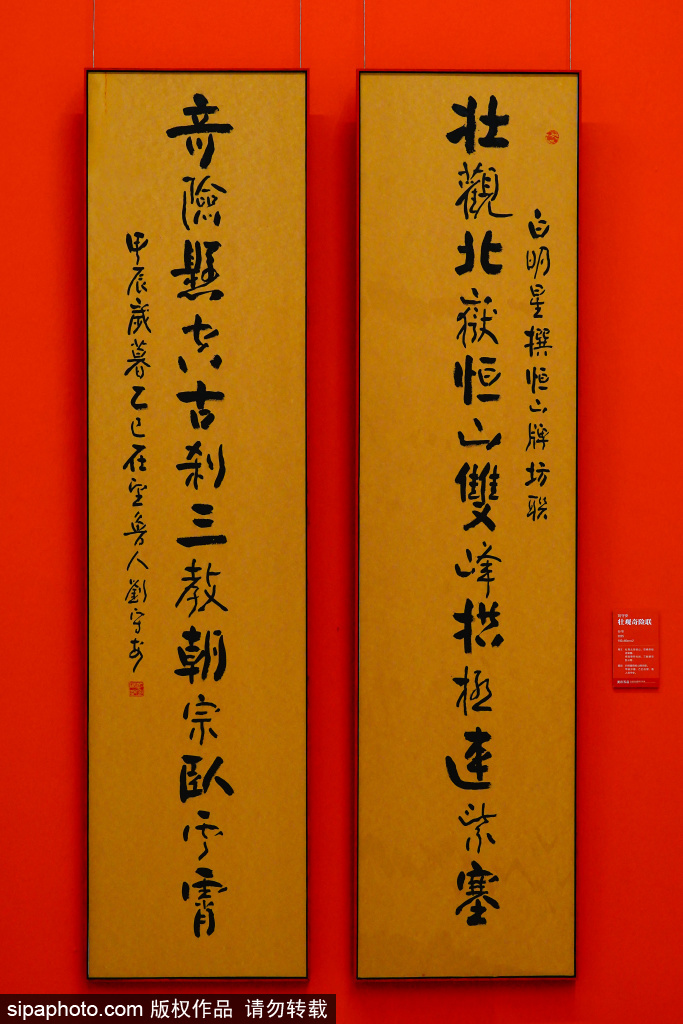 白明星撰恒山牌坊联
壮觀北嶽恒山雙峰拱極連紫塞
奇險懸空古刹三教朝宗臥雲霄
甲辰歲暮乙巳在望魯人劉守安
壮观奇险联
sipaphoto.com 版权作品 请勿转载